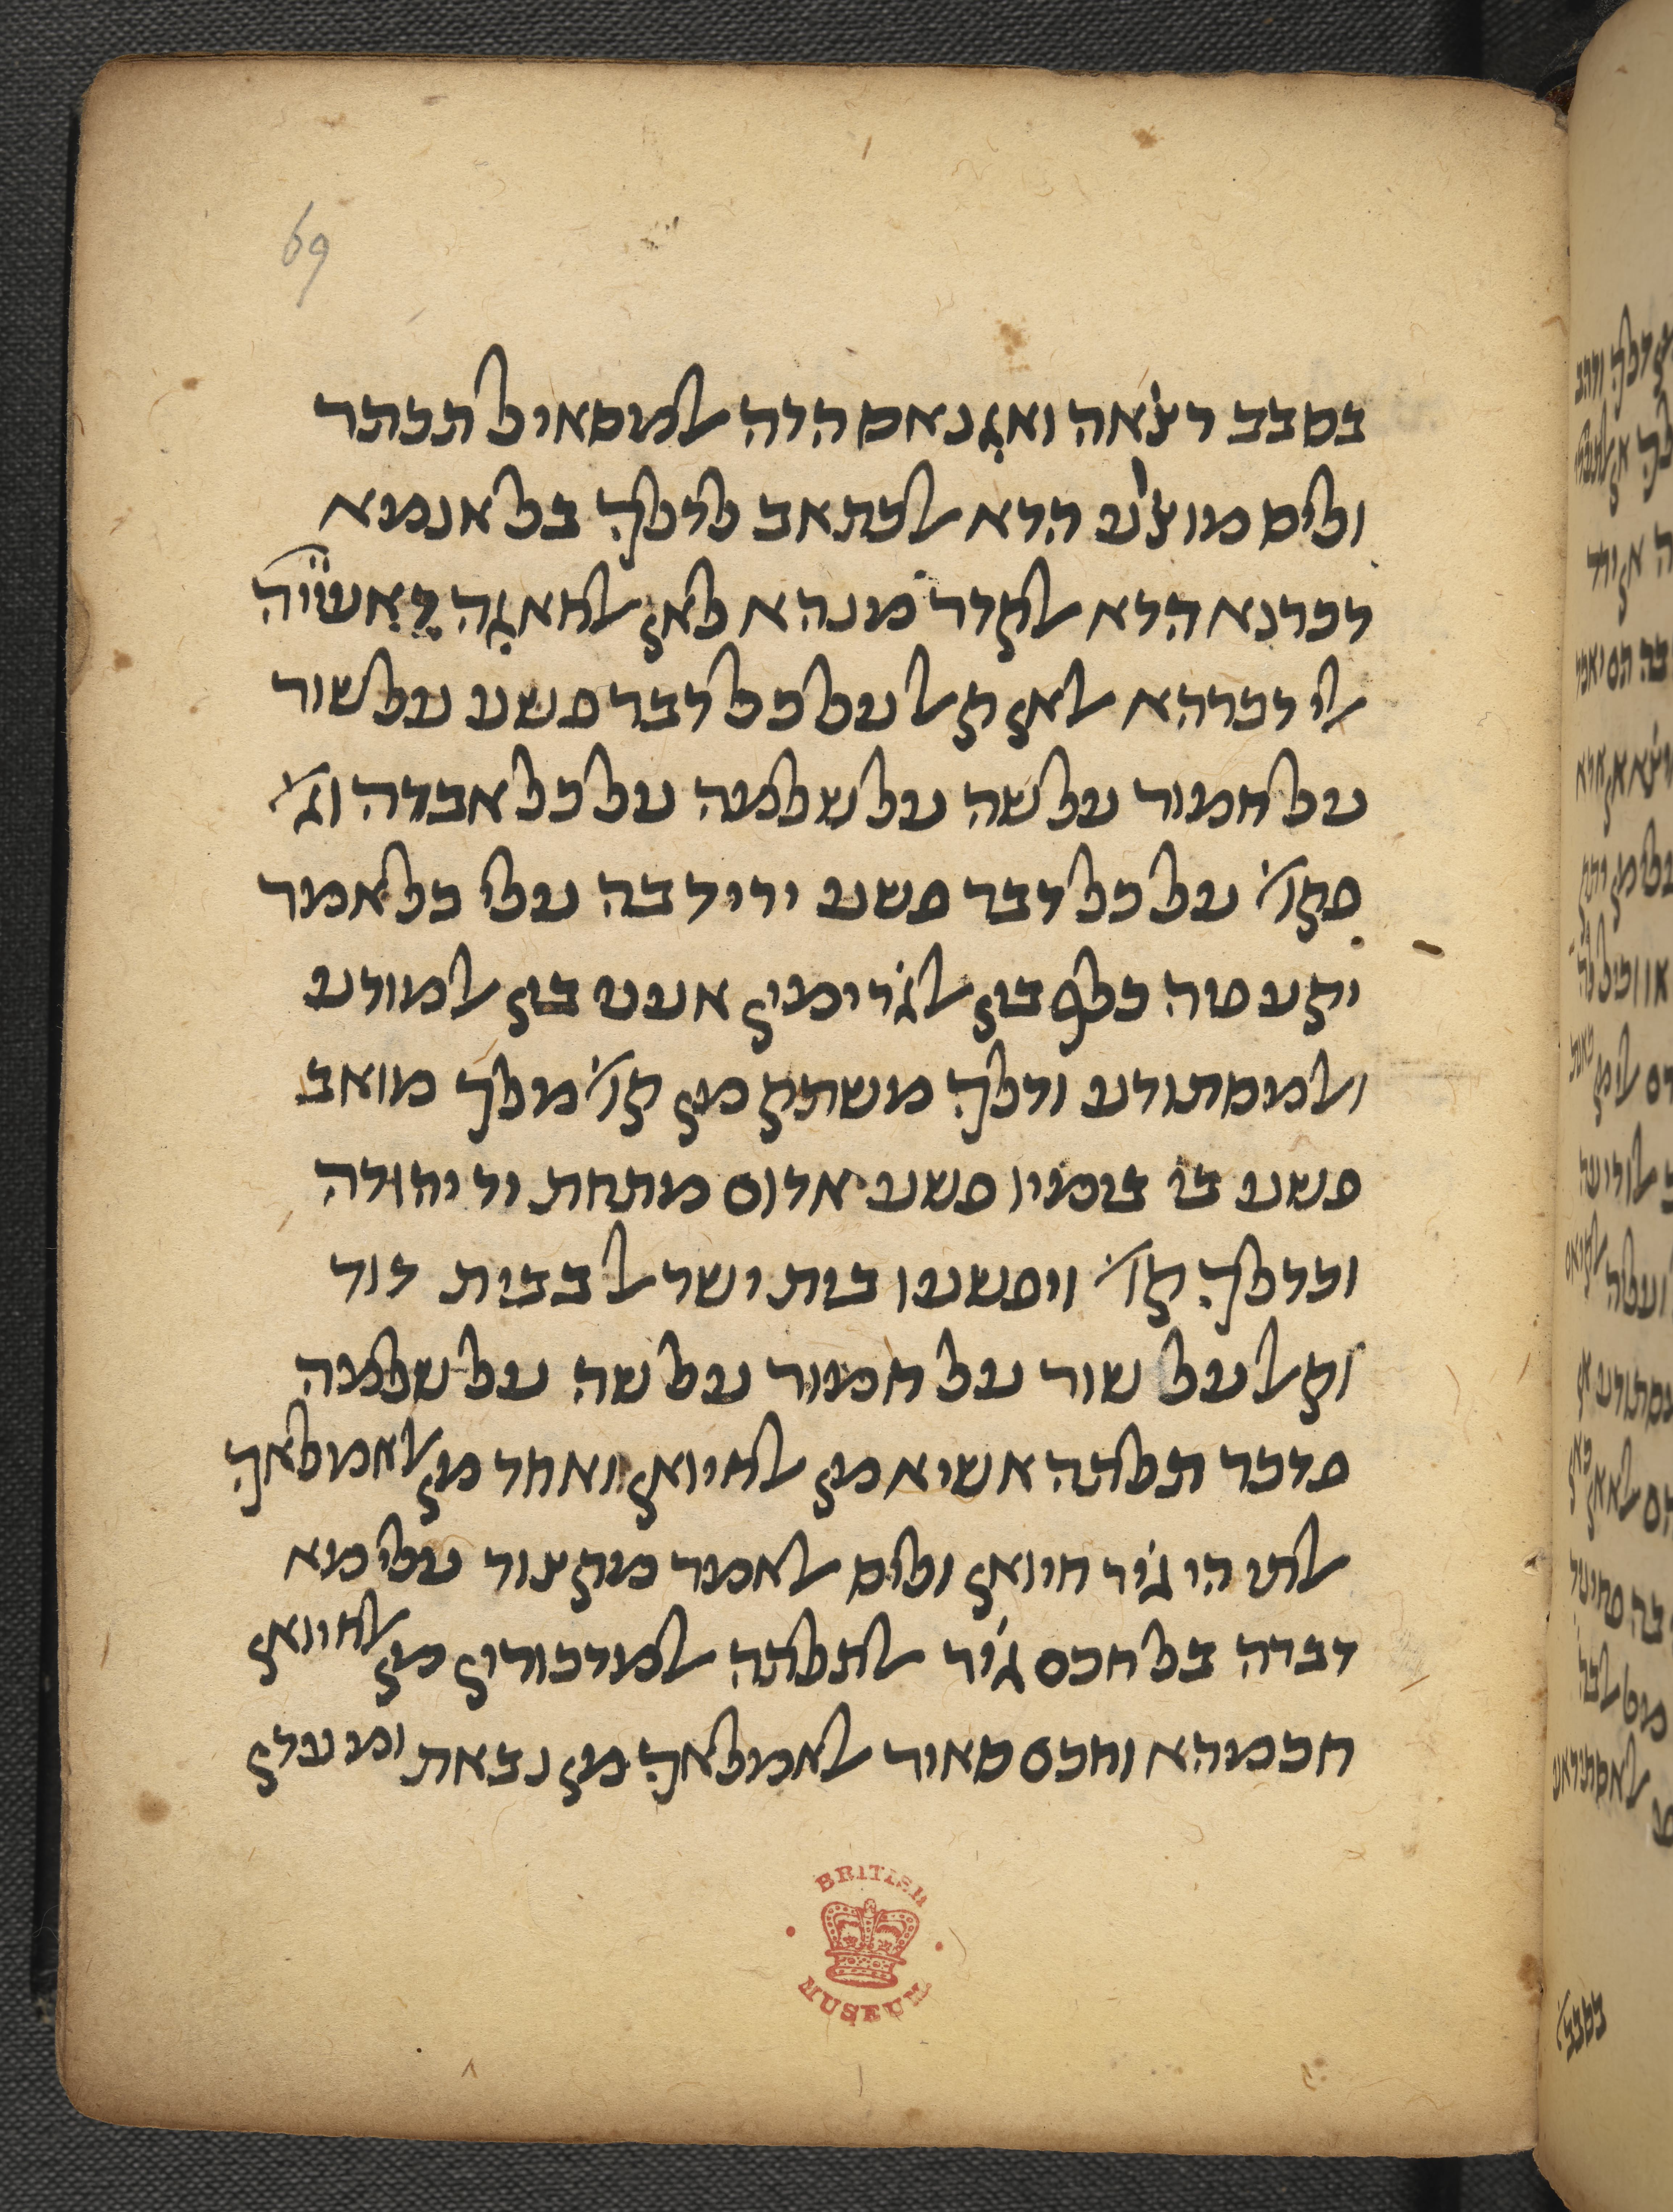 69
בסבב רצ֗אה ואגנאס הדה אלמסאיל תכתר
וליס מוצ֗ע הדא אלכתאב לדלך בל אנמא
דכרנא הדא אלקדר מנהא לאן אלחאגה דאעייה
אלי דכרהא לאן קל על כל דבר פשע על שור
על חמור על שה על שלמה על כל אבדה וג׳
פקו׳ על כל דבר פשע יריד בה עלי כל אמר
יקע פיה כלף בין אלגרימין אעני בין אלמודע
ואלמסתודע ודלך משתק מן קו׳ מלך מואב
פשע בי בימיו פשע אדום מתחת יד יהודה
וכדלך קו׳ ויפשעו בית ישראל בבית דוד
וקאל על שור על חמור על שה על שלמה
פדכר תלתה אשיא מן אלחיואן ואחד מן אלאמלאך
אלתי הי גיר חיואן וליס אלאמר מקצור עלי מא
דכרה בל חכם גיר אלתלתה אלמדכורין מן אלחיואן
חכמהא וחכם סאיר אלאמלאך מן נבאת ומעדן
BRITISH
MUSEUM